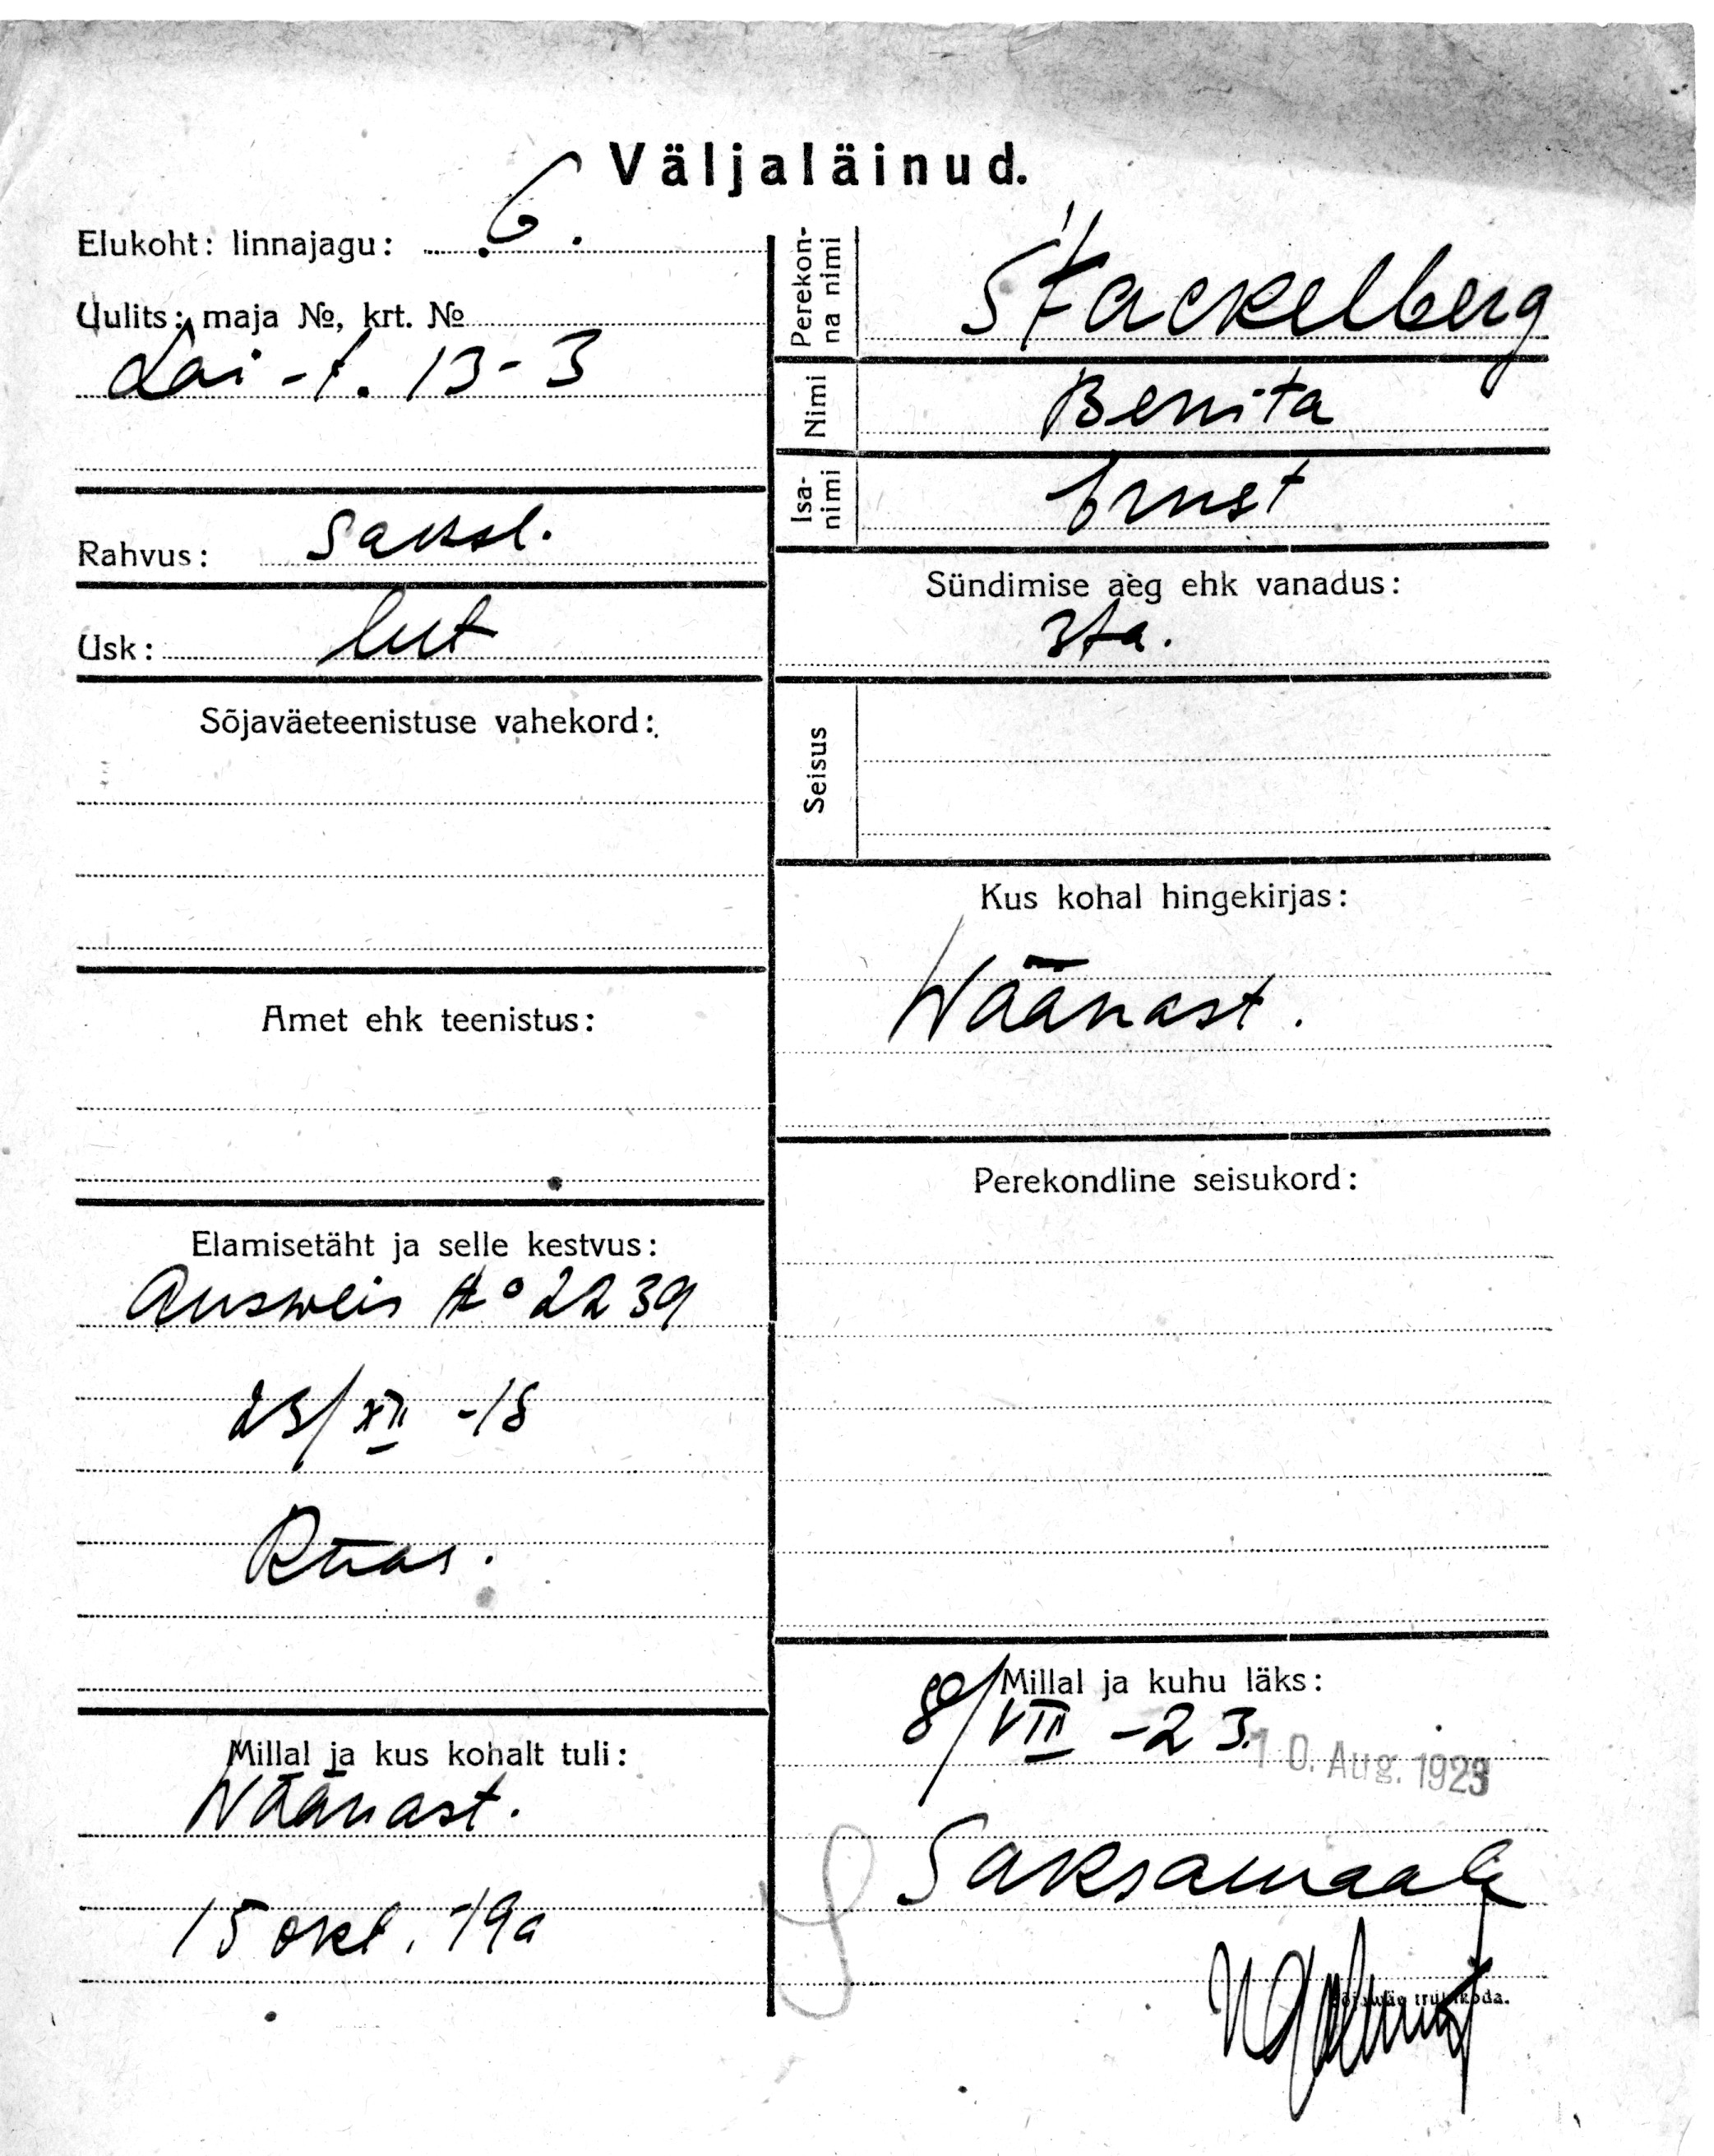 Väljaläinud.
Elukoht: linnajagu: 6.
Uulits: maja №, krt. №
Lai-t. 13-3
Rahvus: Saksl.
Usk: lut
Sõjaväeteenistuse vahekord:
Amet ehk teenistus:
Elamisetäht ja selle kestvus:
Ausweis № 2239
23/XII -18
Millal ja kus kohalt tuli:
Wäänast.
15 okt. 19a
Perekonna nimi
Stackelberg
Nimi
Benita
Isanimi
Ernst
Sündimise aeg ehk vanadus:
Seisus
Kus kohal hingekirjas:
Wäänast.
Perekondline seisukord:
Millal ja kuhu läks:
8/VIII -23.
10. Aug. 1923
Saksamaale
Sõjawäe trükikoda.